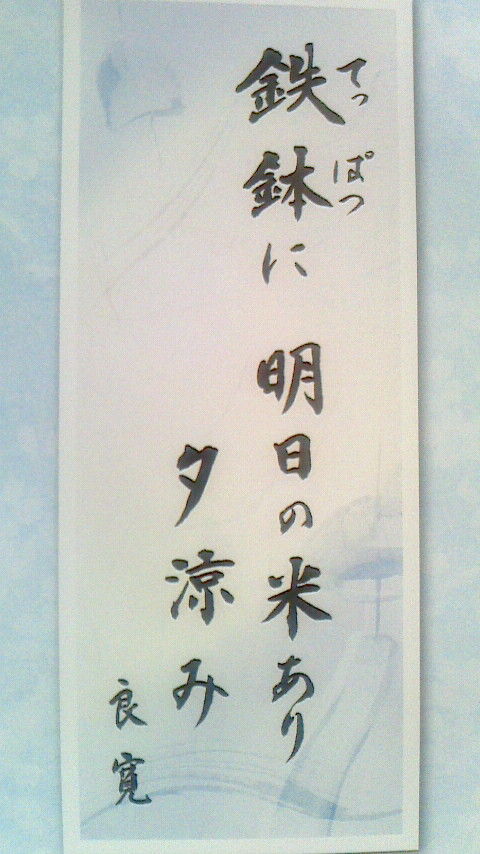 鉄鉢に 明日の米あり
てっ ぱつ
夕涼み
良寛